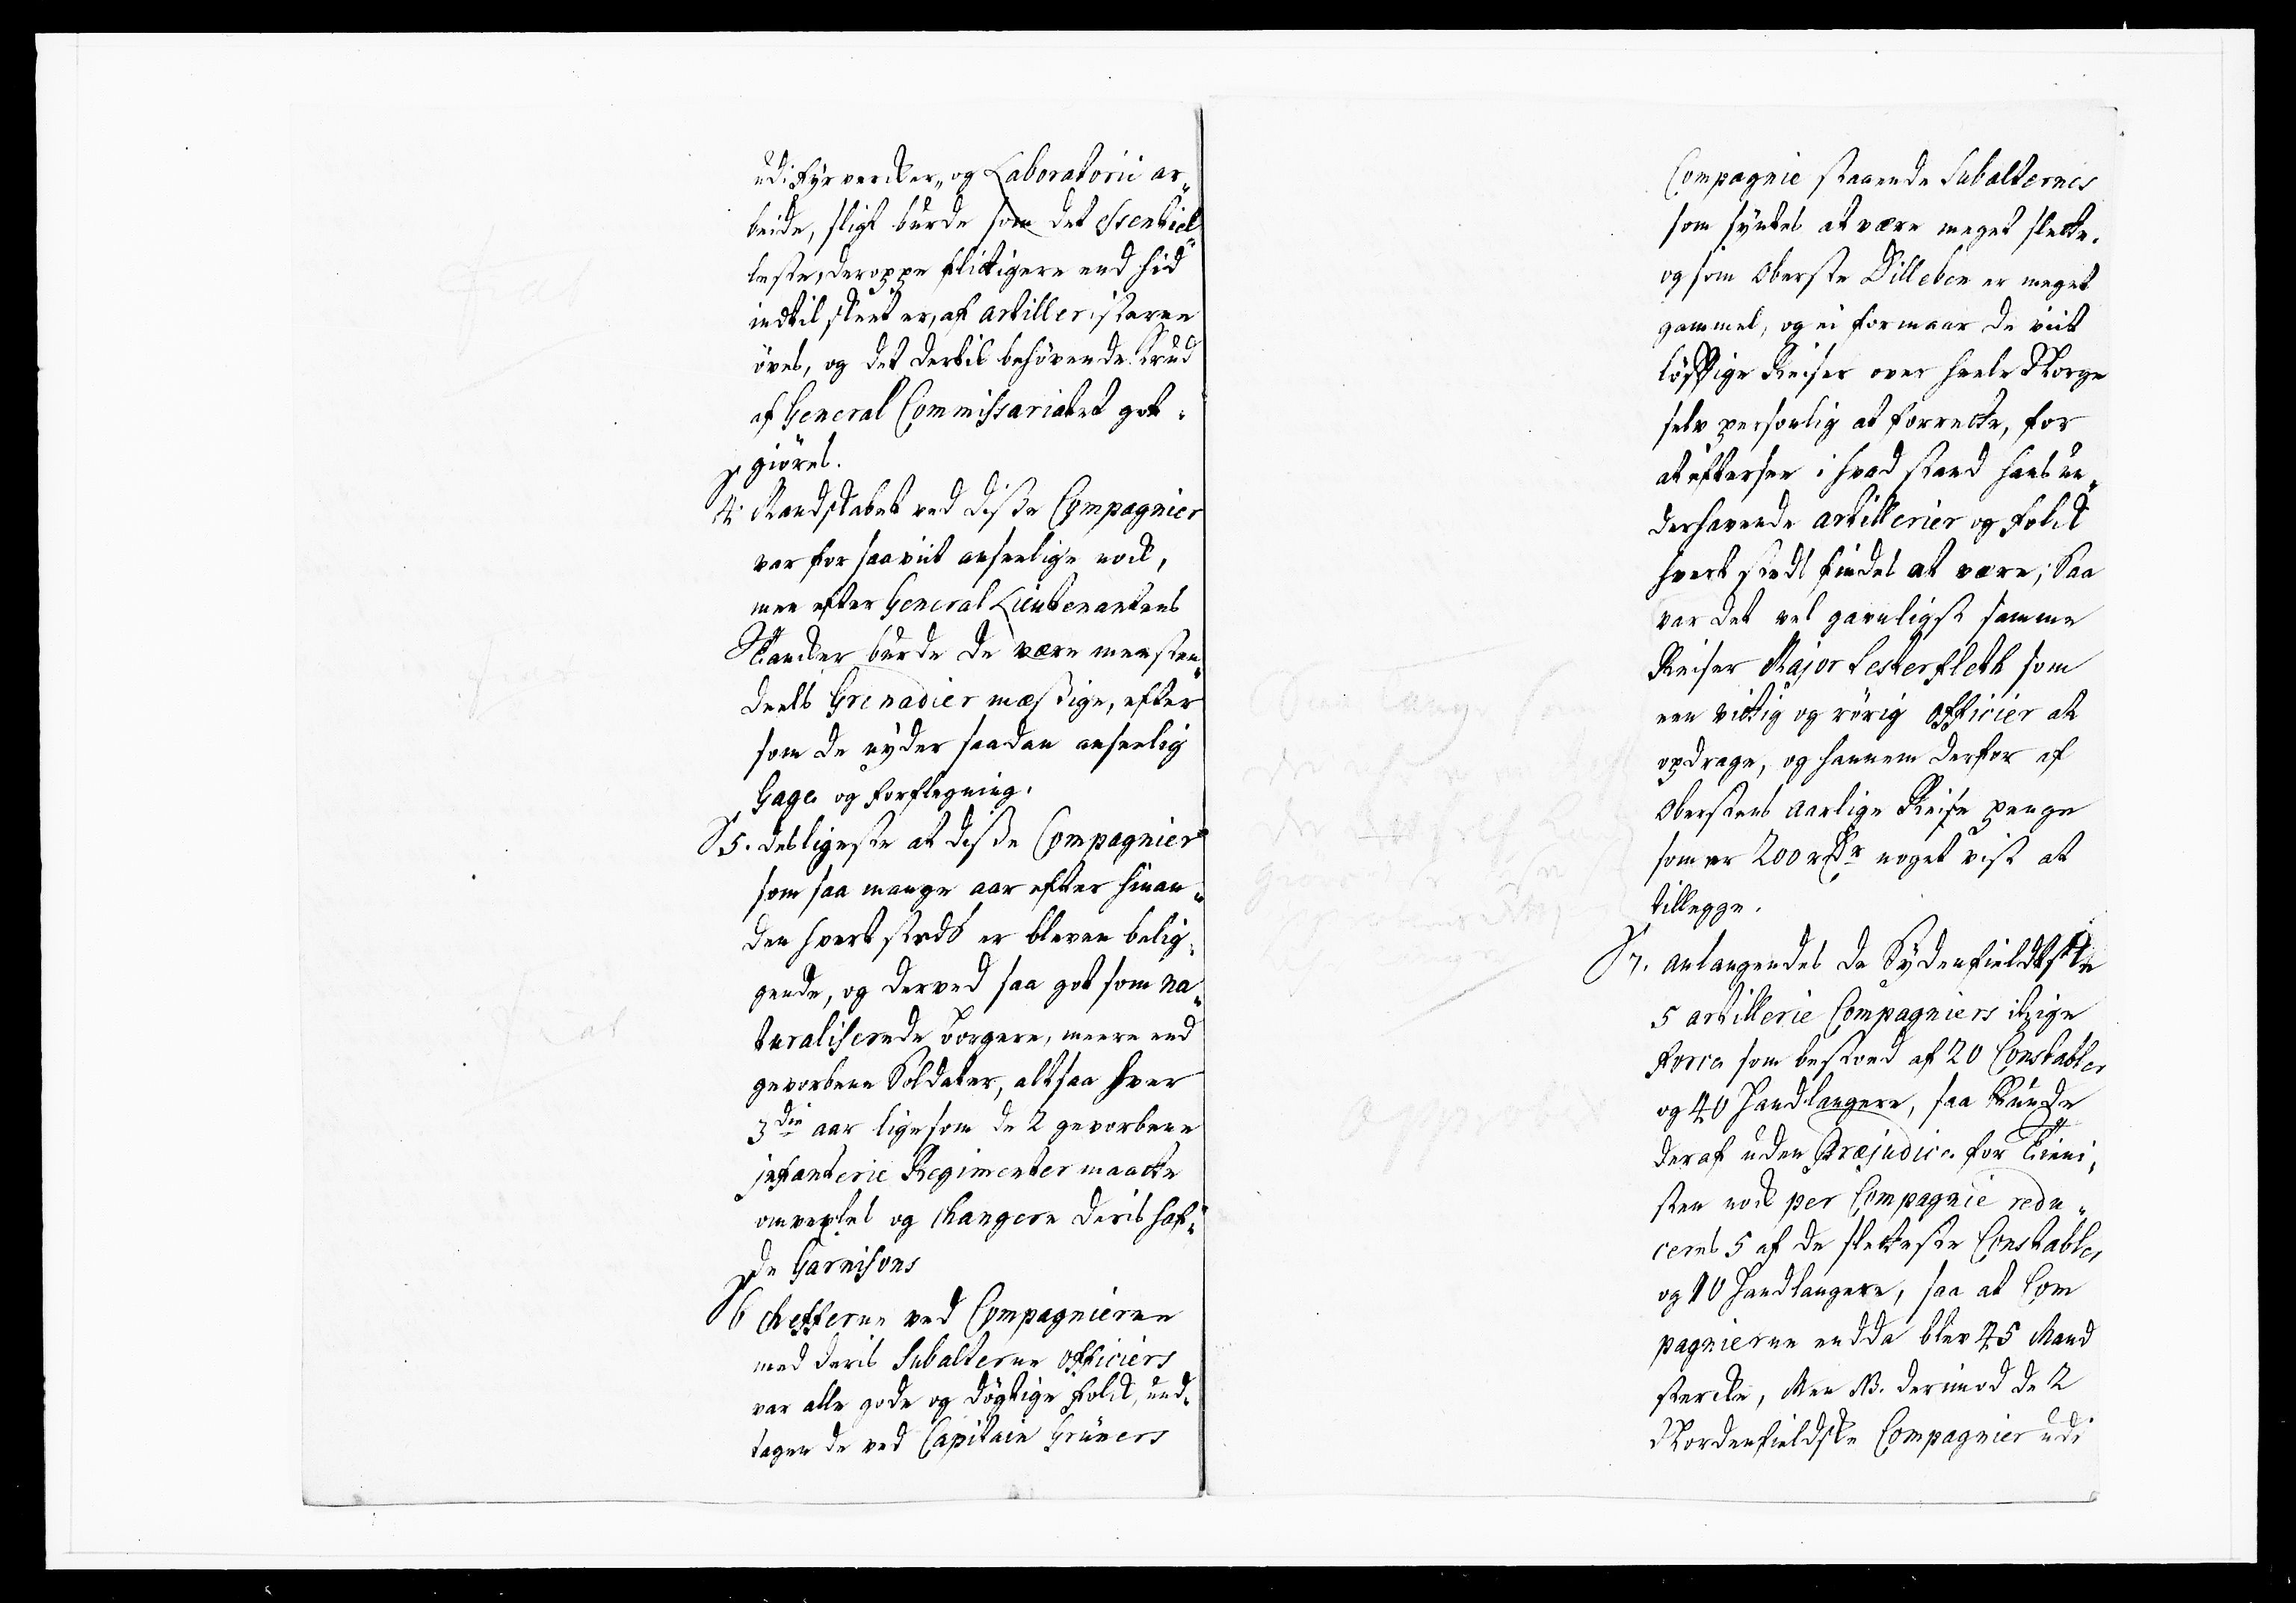 udi Fyrvercker„ og Laboratorii ar„
beide, sligt burde som det essentiel„
leste, deroppe flittigere end hid
indtil skeet er, af artilleristerne
öves, og det dertil behövende Krud
af General Commissariatet got„
giöres.
4. Mandskabet ved disse Compagnier
var for saaviit anseelige nock,
men efter General Lieutenantens
Tancker burde de være meesten„
deels Grenadier mæssige, efter
som de nyder saadan anseelig
Gage og forflegning.
§ 5. desligeste at disse Compagnier
som saa mange aar efter hinan„
den hvert stedt er bleven belig„
gende, og derved saa got som na„
turaliserede borgere, meere end
gevorbene Soldater, altsaa hver
3die aar ligesom de 2 gevorbene
infanterie Regimenter maatte
omvexles og changere deris haf„
de Garnisons
§ 6 Chefferne ved Compagnierne
med deris Subalterne officiers
var alle gode og dögtige folck, und„
tagen de ved Capitain Grüners
Compagnie staaende Subalternes
som syntes at være meget slette.
og som Oberste Dilleben er meget
gammel, og ei formaar de viit
löftige Reiser over heele Norge
selv personlig at forrette, for
at eftersee i hvad stand hans un„
derhavende artillerier og folck
hvert stedt findes at være; Saa
var det vel gavnligst samme
Reiser Major Lesterfleth som
een vittig og rörig officier at
opdrage, og hannem derfor af
Oberstens aarlige Reise penge
som er 200 rdr noget vist at
tillegge.
§ 7. anlangendes de Sydenfieldske
5 artillerie Compagniers itzige
Force som bestoed af 20 Constabler
og 40 Handlangere, saa kunde
deraf uden Præjudice for Tieni„
sten nock per Compagnie redu„
ceres 5 af de sletteste Constabler
og 10 Handlangere, saa at Com
pagnierne endda blev 45 Mand
stercke, Men NB. derimod de 2
Nordenfieldske Compagnier udi